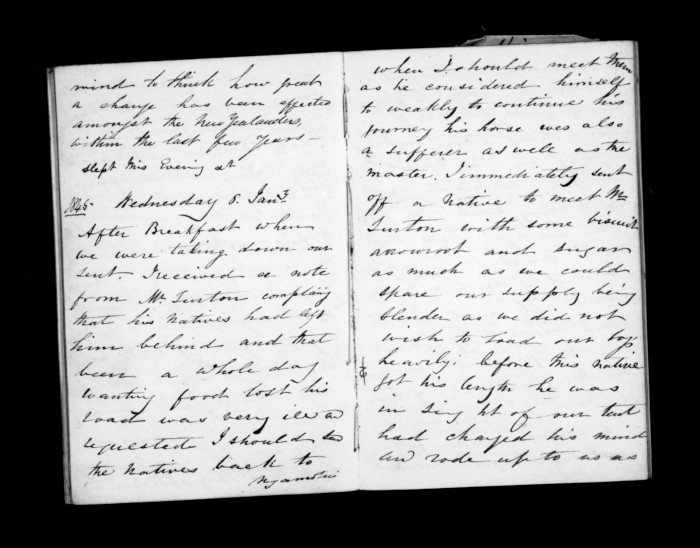 mind to think how great
a change has been effected
amongst the New Zealanders,
within the last few years—
slept this Evening at
1845 Wednesday 8. Jany.
After Breakfast when
we were taking down our
tent. I received a note
from Mr. Turton complaing
that his natives had left
him behind and that
been a whole day
wanting food lost his
road was very ill a
requested I should
the Natives back to
Ngamotu
when I should meet them
as he considered himself
to weakly to continue his
journey his horse was also
a sufferer as well as the
master. I immediately sent
off a Native to meet Mr
Turton with some biscuit
arowroot and sugar
as much as we could
spare our supply being
slender as we did not
wish to load our boys
heavily; before this native
got his length he was
in sight of our tent
had changed his mind
and rode up to us as